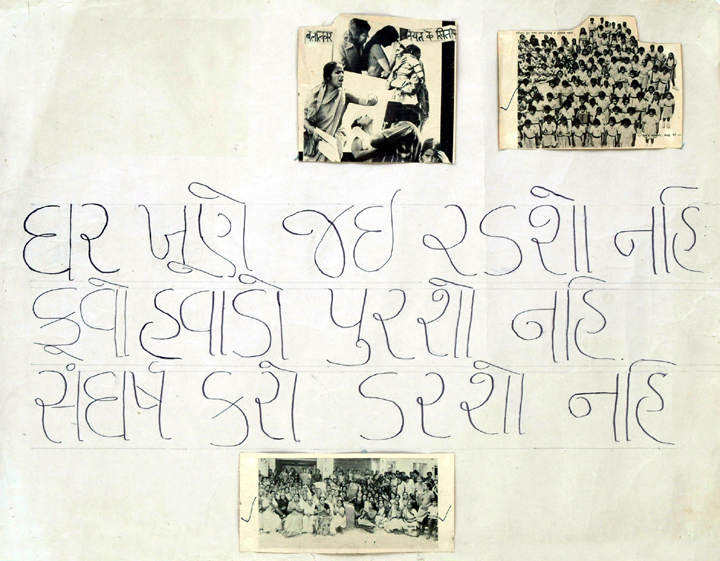 बलात्कार के
ઘર ખૂણે જઇ રડશો નહિ
કૂવો હવાડો પુરશો નહિ
સંઘર્ષ કરો ડરશો નહિ